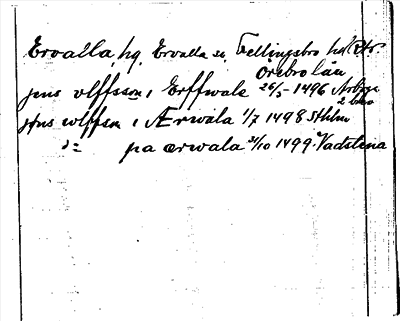 Ervalla hg. Ervalla sn, Fellingsbro hd
Örebro län
jens vlffsson i Erffwala 26/5 - 1496 Arboga
2 brev
jéns wlffsn i Ærwala 1/7 1498 Sthlm
d:o pa ærwala 31/10 1499. Vadstena